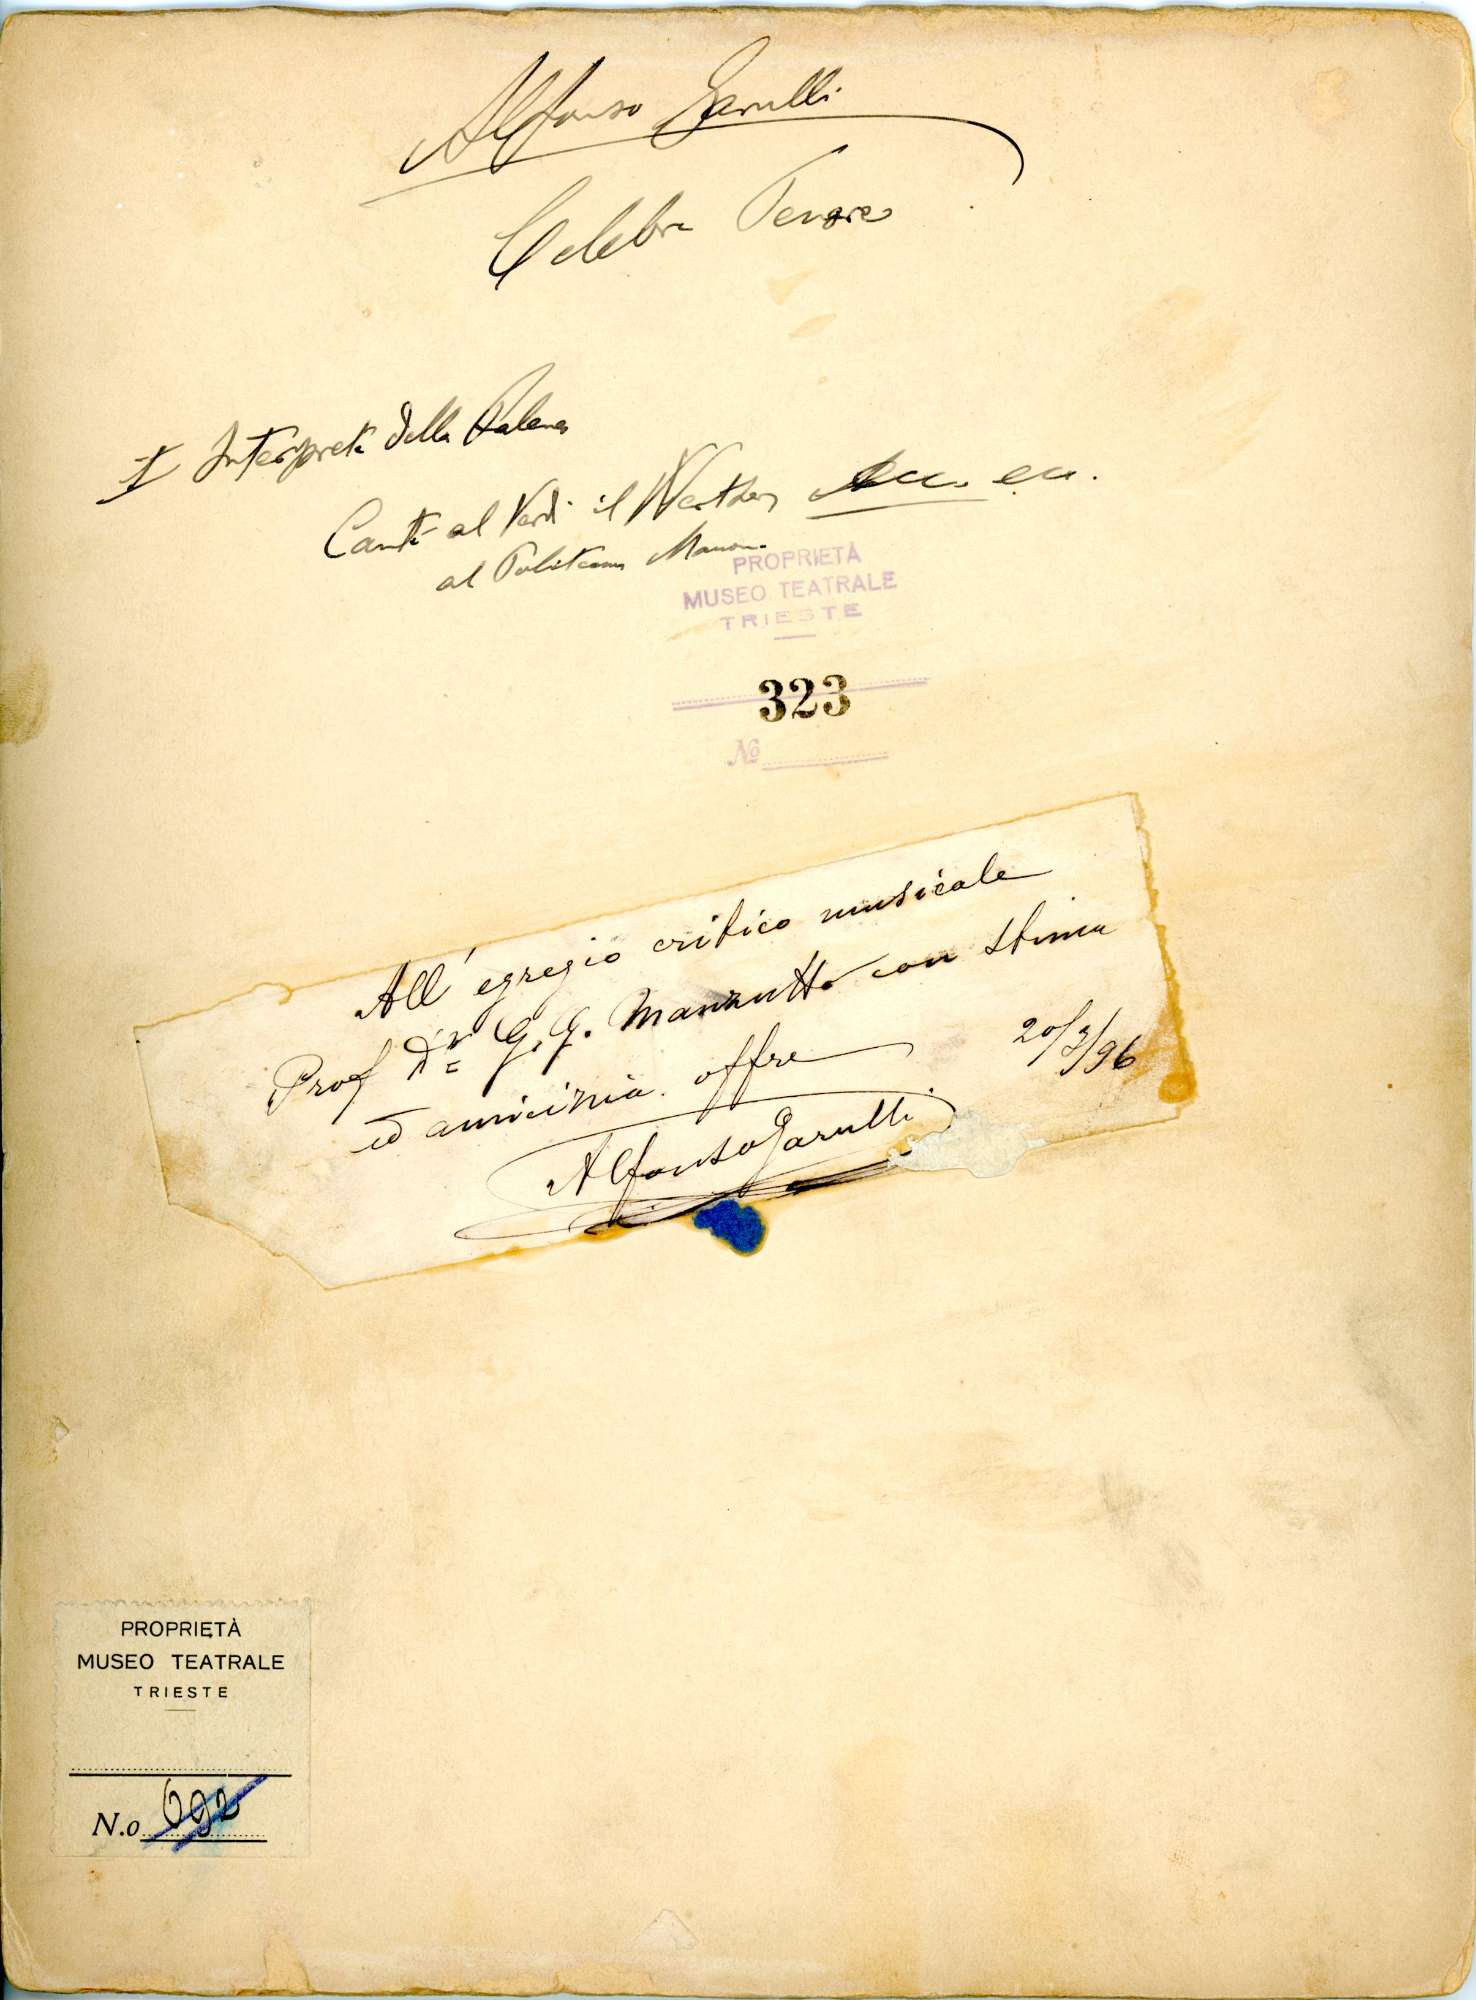 Alfonso Garulli
Celebre Tenore
I Interprete della Falena
Cantò al Verdi il Werther ecc. ecc.
al Politeama Manon
PROPRIETÀ
MUSEO TEATRALE
TRIESTE
323
No
All'egregio critico musicale
Prof Dr. G. G. Manzutto con stima
ed amicizia offre
20/3/96
Alfonso Garulli
PROPRIETÀ
MUSEO TEATRALE
TRIESTE
N.o 692